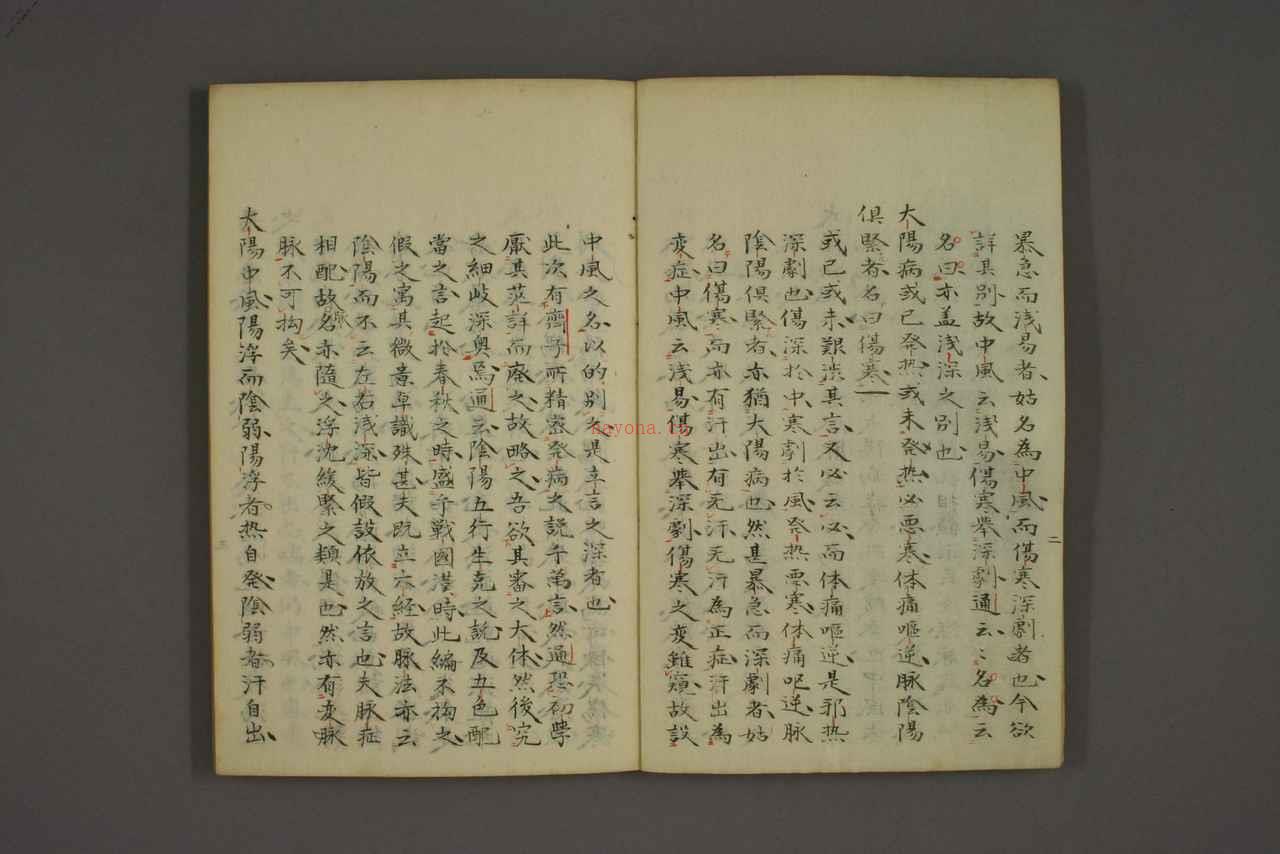 暴急而浅易者姑名為中風而傷寒深劇者也今欲
詳其別故中風云浅易傷寒举深劇通云云名為云
名曰亦盖浅深之別也
太陽病或已発热或未発热必悪寒体痛嘔逆脉陰陽
俱緊者名曰傷寒
或已或未艱渋其言又必云必而体痛嘔逆是邪热
深劇也傷深於中寒劇於風発热悪寒体痛呕逆脉
陰陽俱緊者亦猶太陽病也然甚暴急而深劇者姑
名曰傷寒而亦有汗出有无汗无汗為正症汗出為
変症中風云浅易傷寒举深劇傷寒之変雖 故設
二
中風之名以的別者是立言之深者也
此次有齊 所精密発病之説千萬言然通恐初學
厭其 詳而廃之故略之吾欲其審之大体然後究
之細岐深奥焉通云陰陽五行生克之説及五色配
當之言起於春秋之時盛乎戰國漢時此編不拘之
假之寓其微意卓識殊甚夫既立六経故脉法亦云
陰陽而不云左右浅深皆假設依放之言也夫脉症
相配故名亦隨之浮沈緩緊之類是也然亦有変脉
脉
脉不可拘矣
太陽中風陽浮而陰弱陽浮者热自発陰弱者汗自出
三
hayona.cn